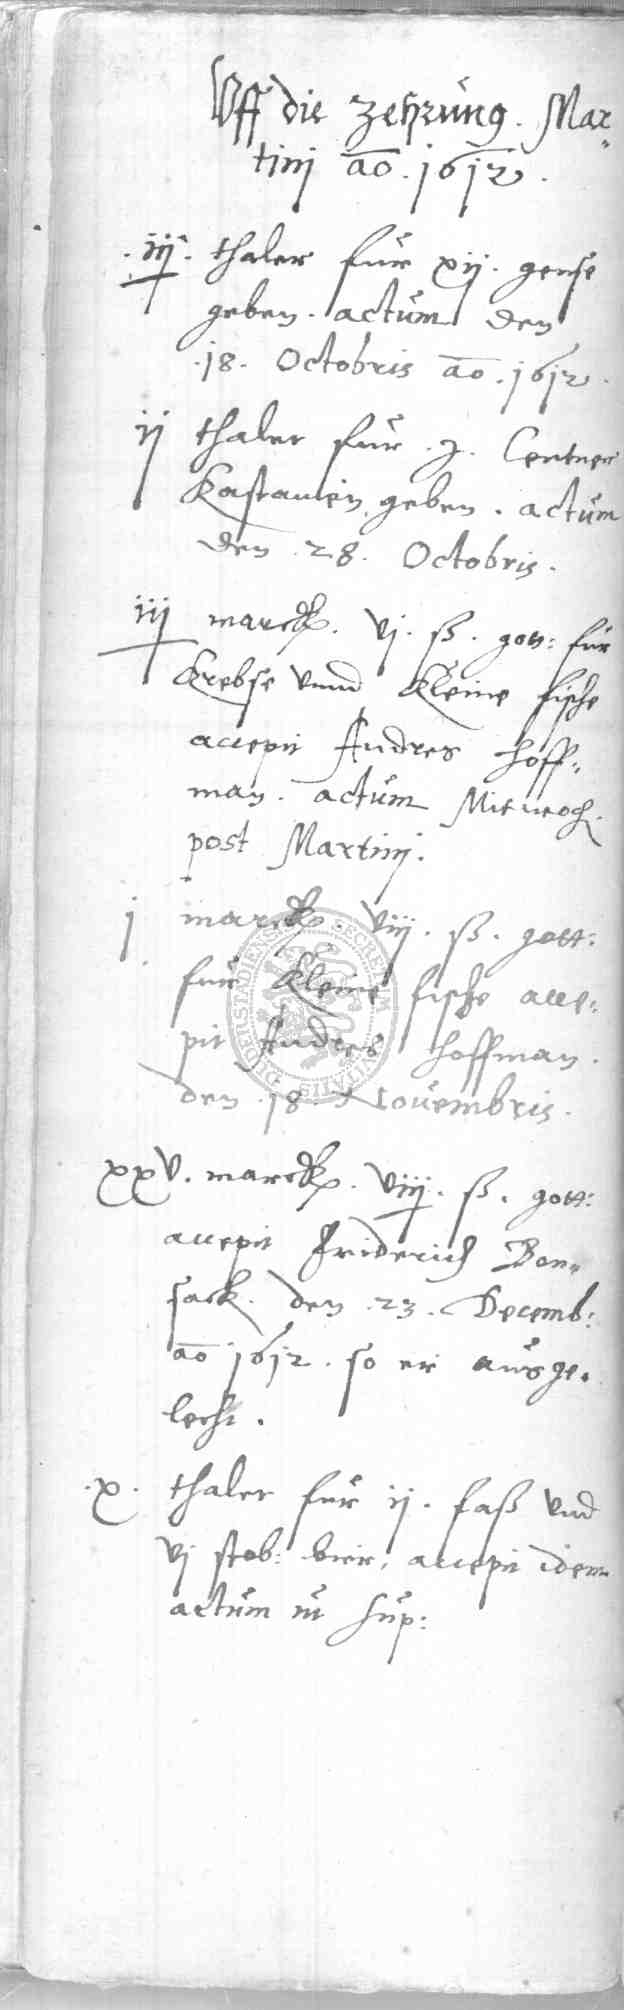 Vff die Zehrung. Mar„
tinj ao. 1612.
iij. thaler für xij. gense
geben. actum den
18. Octobris ao. 1612.
ij thaler für .j. Centner
Kastanien geben. actum
den 28. Octobris.
iij marck. vj. ß. gott: für
Krebse vnnd Kleine fische
accepit Andres Hoff„
man. actum Mitwoch.
post Martinj.
j marck. viij. ß. gott:
für kleine fische acce„
pit Andres Hoffman.
den 18. Novembris.
xxv. marck. viij. ß. gott:
accepit Friderich Bon„
sack. den 23. Decemb:
ao 1612. so er ausge„
lecht.
.x. thaler für ij. faß vnd
vj stob: bier, accepit idem
actum ut sup:
SECRETVM CIVITATIS DVDERSTADIENSIS